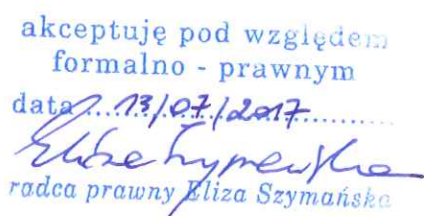 akceptuję pod względem
formalno - prawnym
data.....13/07/2017...............
Eliza Szymańska
radca prawny Eliza Szymańska